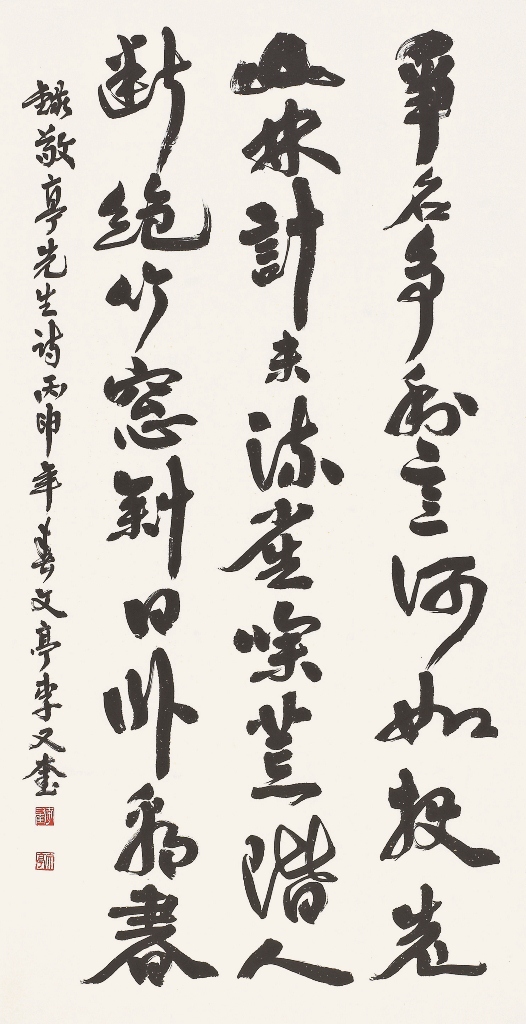 爭名爭利意何如投老
山林計未疏雀噪荒階人
斷絶竹窓斜日臥看書
錄敬亭先生詩丙申年春文亭李又奎